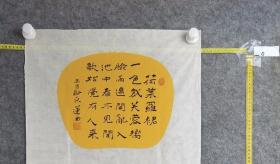 荷葉羅裙
一色裁芙蓉向
臉兩邊開亂入
池中看不見聞
歌始覺有人來